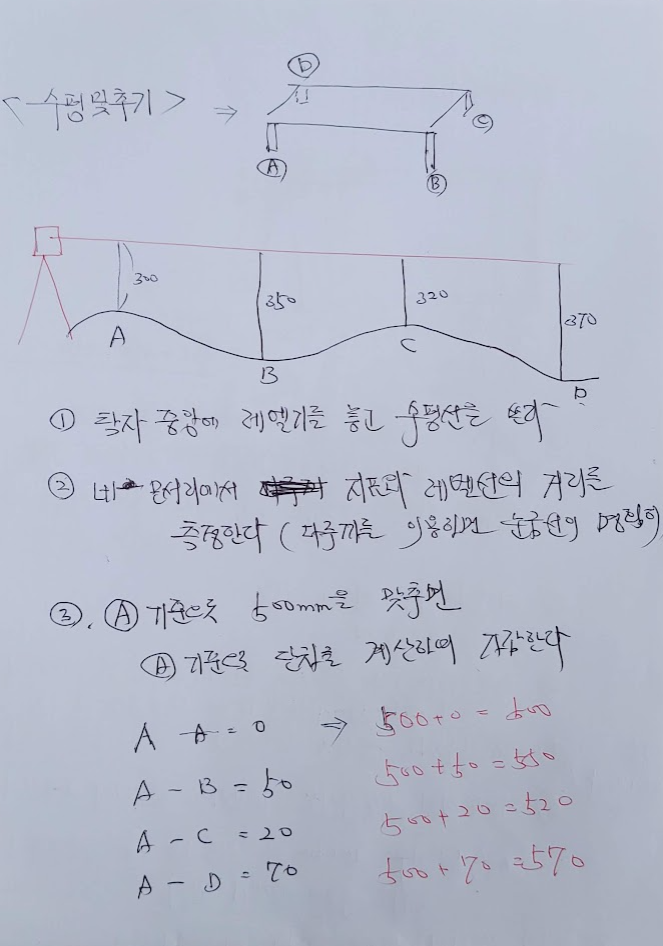 <수평맞추기> ⇒
Ⓓ
Ⓒ
Ⓐ
Ⓑ
300
350
320
370
A
B
C
D
① 탁자 중앙에 레벨기를 놓고 수평선을 쏜다
② 네 모서리에서 지표와 레벨선의 거리를
측정한다 (다줄자를 이용하면 눈금선이 명확히
③. Ⓐ 기준으로 500mm을 맞추면
Ⓐ 기준으로 단차를 계산하여 가감한다
A - A = 0 → 500+0 = 500
A - B = 50 500+50 = 550
A - C = 20 500+20 = 520
A - D = 70 500+70 = 570